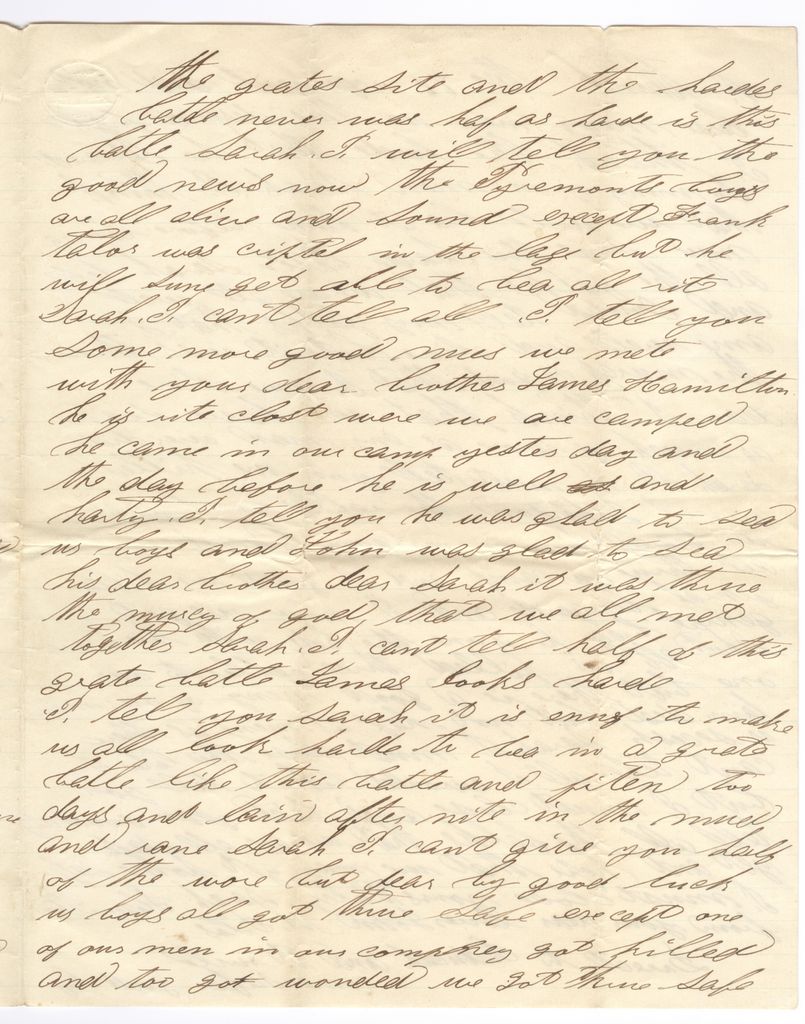 the grates site and the hardes
battle never was haf as harde is this
battle Sarah. I. will tell you the
good news now the Pyremonts boys
are all alive and sound except Frank
talor was cripled in the lags but he
will sune get able to bea all rit
Sarah. I. cant tell all. I. tell you
some more good nues we mete
with your dear brother James Hamilton
he is rite clost were we are camped
he came in our camp yester day and
the day before he is well and
harty. I. tell you he was glad to sea
us boys and John was glad to sea
his dear brother dear Sarah it was thrue
the mursy of god that we all met
together Sarah. I. cant tell half of this
grate battle James looks harde
I. tel you Sarah it is enuf to make
us all look harde to bea in a grate
battle like this battle and fiten too
days and lain after nite in the mud
and rane Sarah I. cant give you half
of the wore but dear by good luck
us boys all got thrue safe except one
of our men in our compney got killed
and too got wonded we got thrue safe